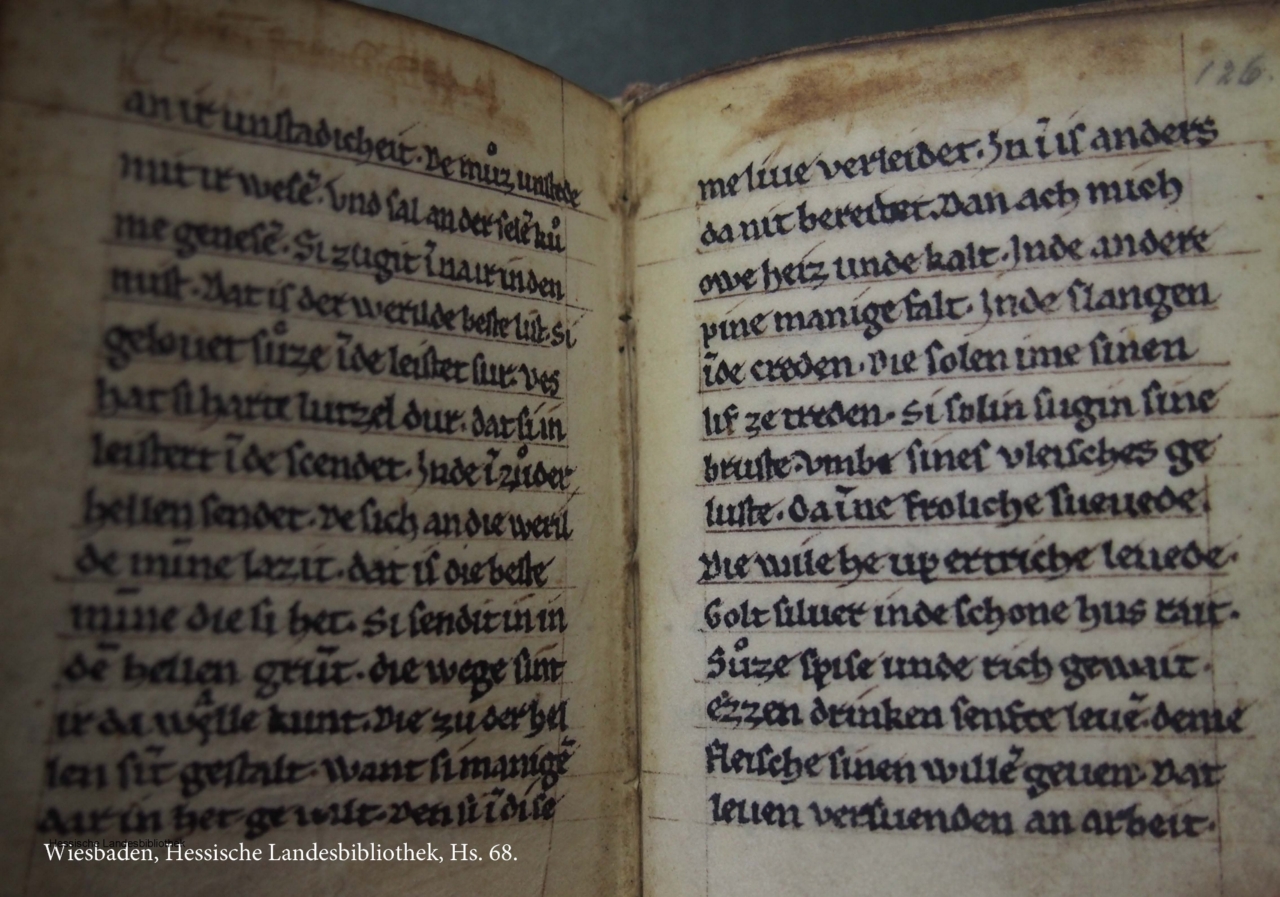 an ir unſtadicheit · De můz unſtede
mit ir weſē · vnd ſal an der ſelē ků
me geneſē · Si zugit ī nair in den
miſt · Dat iſ der werilde beſte liſt · Si
gelouet ſůze īde leiſtet ſur · ves
hat ſi harte lutzel dur · dat ſi in
leiſtert īde ſcendet · Inde ī zů der
hellen ſendet · De ſich an die weril
de mīne lazit · dat iſ die beſte
mīne die ſi het · Si ſendit in in
dē hellen grūt · die wege ſint
ir da kunt · Die zu der hel
len ſīt geſtalt · want ſi manigē
dar in het · Den ſi ī diſe
126
me liue verleidet · In ī iſ anders
da nit · Dan ach mich
owe heiz unde kalt · Inde andere
pine manige falt · Inde ſlangen
īde creden · Die ſolen ime ſinen
lif ze treden · Si ſolin ſugin ſine
bruſte · vmbe ſineſ vleiſches ge
luſte · Da īne froliche ſueuede ·
Die wile he up ertriche leuede ·
Golt ſiluer inde ſchone hus rait ·
Sůze ſpiſe unde rich gewait ·
ezzen drinken ſenfte leuē · deme
fleiſche ſinen willē geuen · Dat
leuen verſuenden an arbeit ·
Hessische Landesbibliothek
Wiesbaden, Hessische Landesbibliothek, Hs. 68.